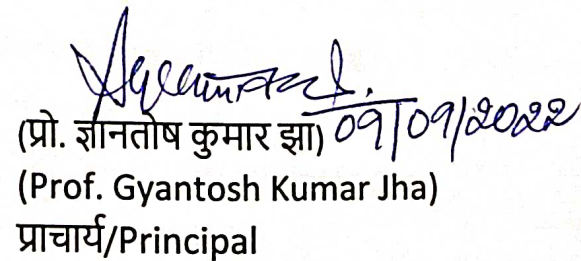 (प्रो. ज्ञानतोष कुमार झा) 09/09/2022
(Prof. Gyantosh Kumar Jha)
प्राचार्य/Principal